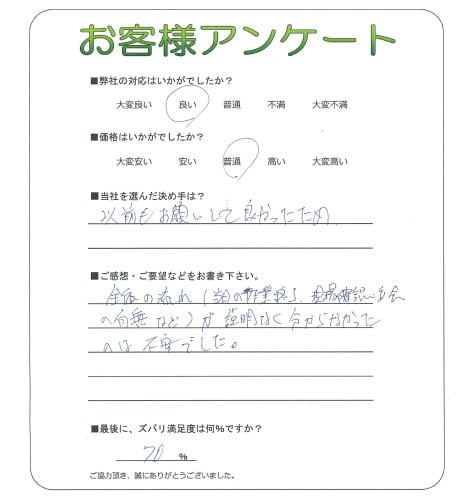 お客様アンケート
■弊社の対応はいかがでしたか?
大変良い 良い 普通 不満 大変不満
■価格はいかがでしたか?
大変安い 安い 普通 高い 大変高い
■当社を選んだ決め手は?
以前もお願いして良かったため
■ご感想・ご要望などをお書き下さい。
全体の流れ(当日の作業終了、現場確認の立会
の有無など)が説明なく分からなかった
のは不安でした。
■最後に、ズバリ満足度は何%ですか?
70 %
ご協力頂き、誠にありがとうございました。